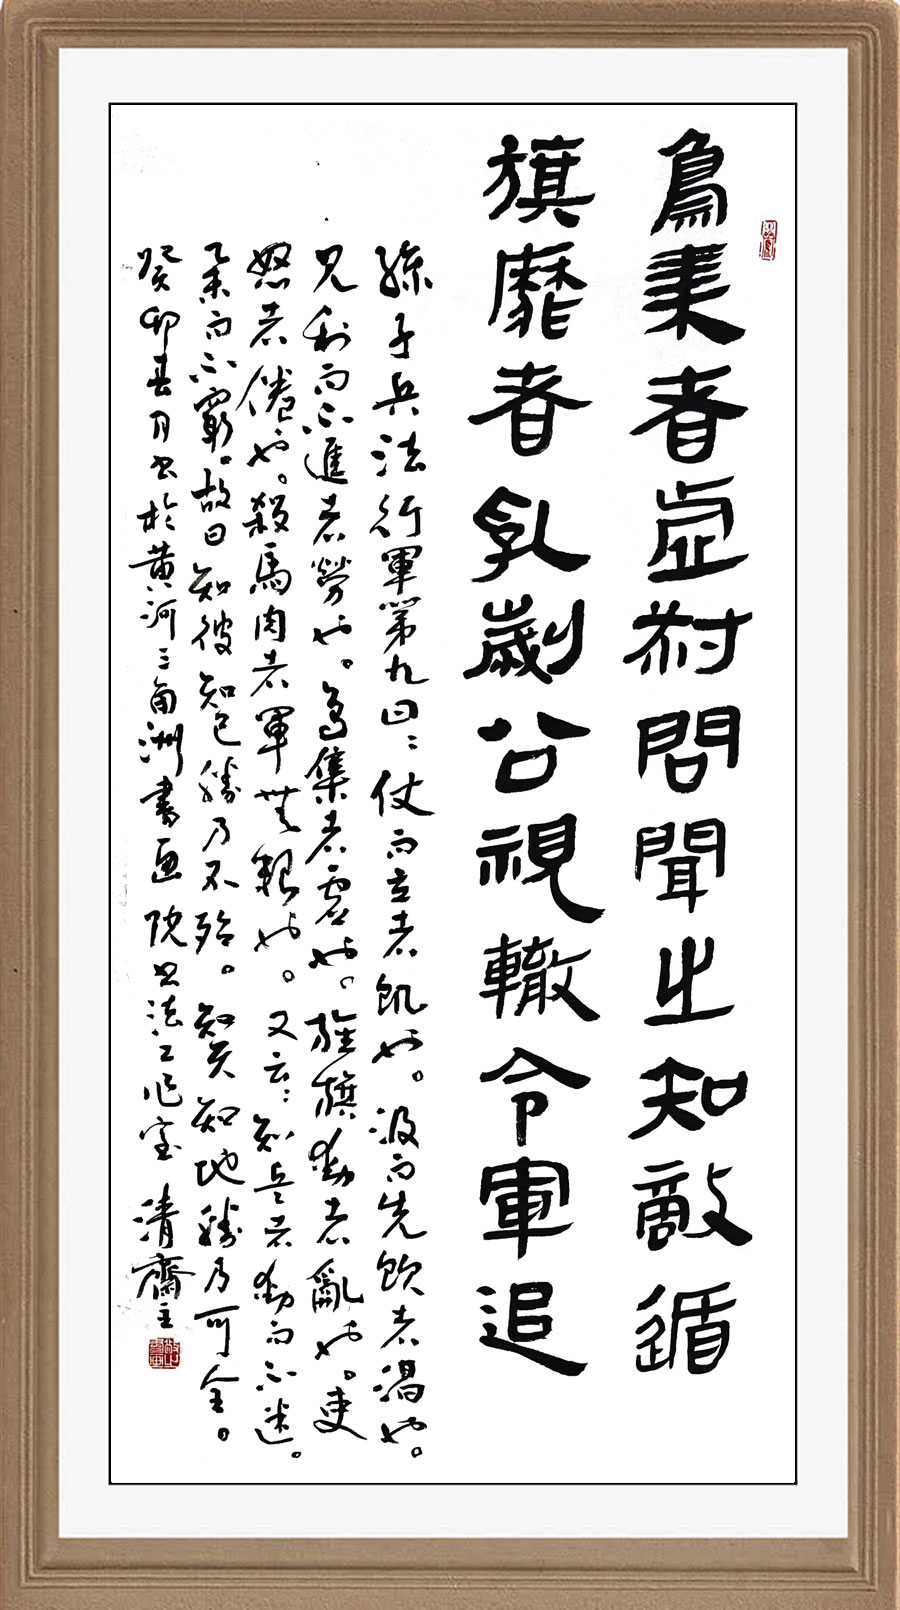 鳥集者虛叔向聞之知敵遁
旗靡者亂劌公視轍令軍追
孫子兵法行軍第九曰：仗而立者飢也。汲而先飲者渴也。
見利而不進者勞也。鳥集者虛也。旌旗動者亂也。吏
怒者倦也。殺馬肉者軍無糧也。又云：知兵者動而不迷。
舉而不窮。故曰知彼知己勝乃不殆。知天知地勝乃可全。
癸卯春月书於黄河三角洲書画院书法工作室 清齋主